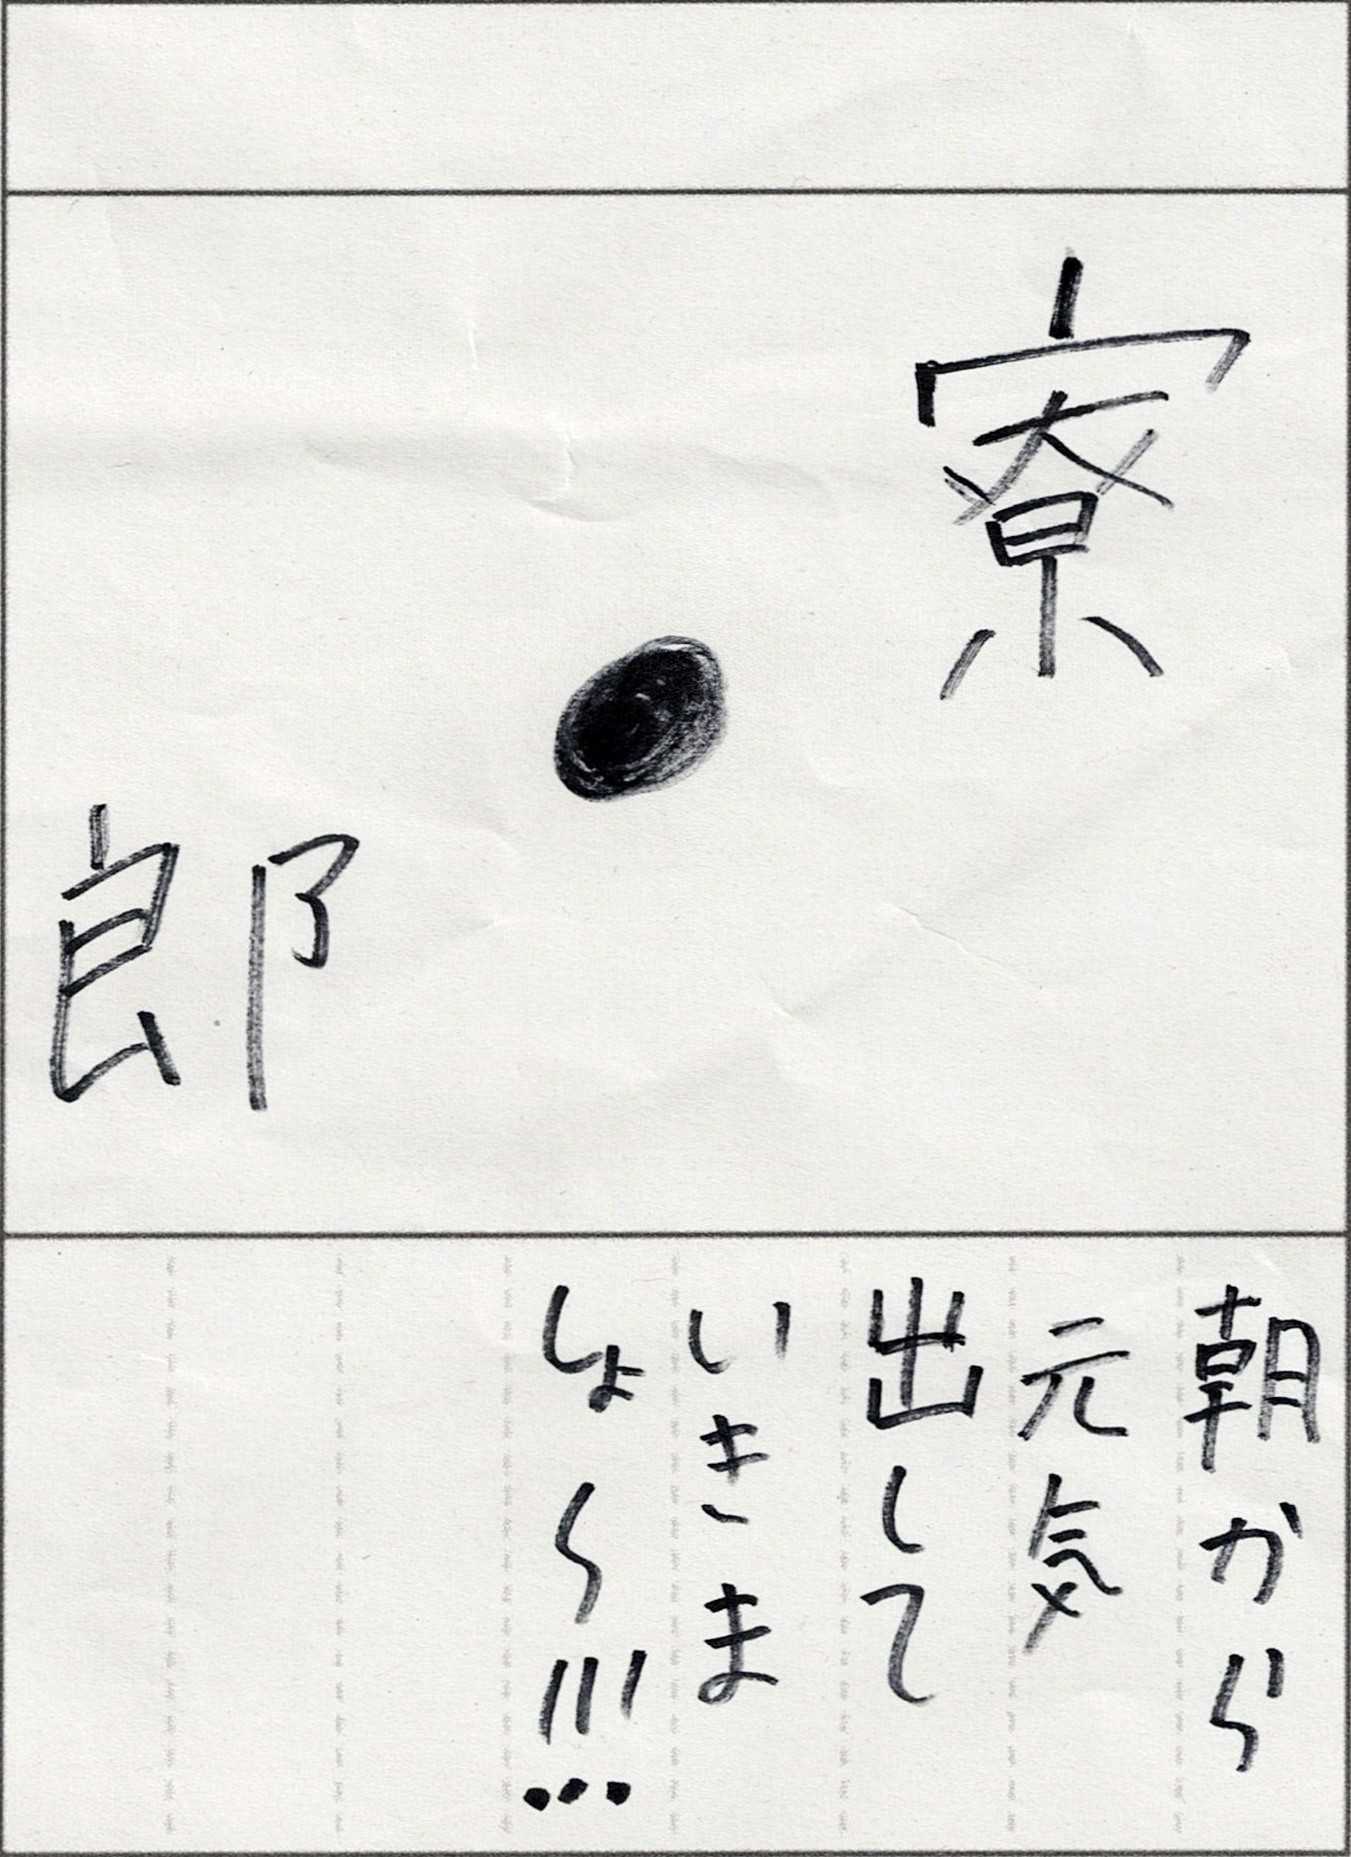 寮
●
郎
朝から
元気
出して
いきま
しょ〜!!!